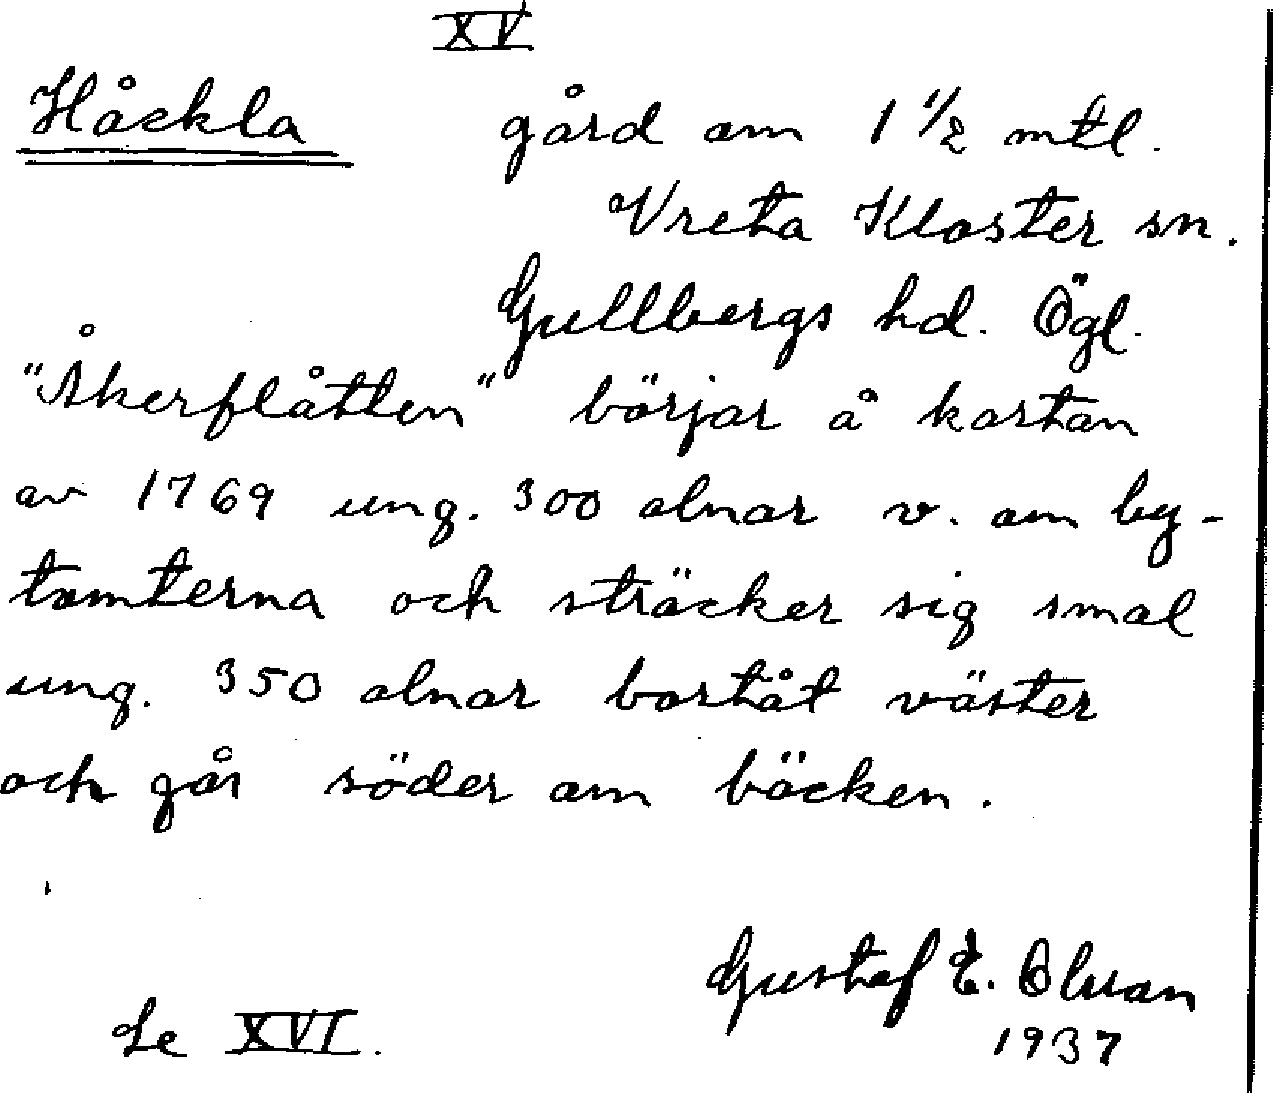 XV
Håckla gård om 1 1/2 mtl.
Vreta Kloster sn.
Gullbergs hd. Ögl.
"Åkerflåtten" börjar å kartan
av 1769 ung. 300 alnar v. om by-
tomterna och sträcker sig smal
ung. 350 alnar bortåt väster
och går söder om bäcken.
Gustaf E. Olsson
Se XVI. 1937